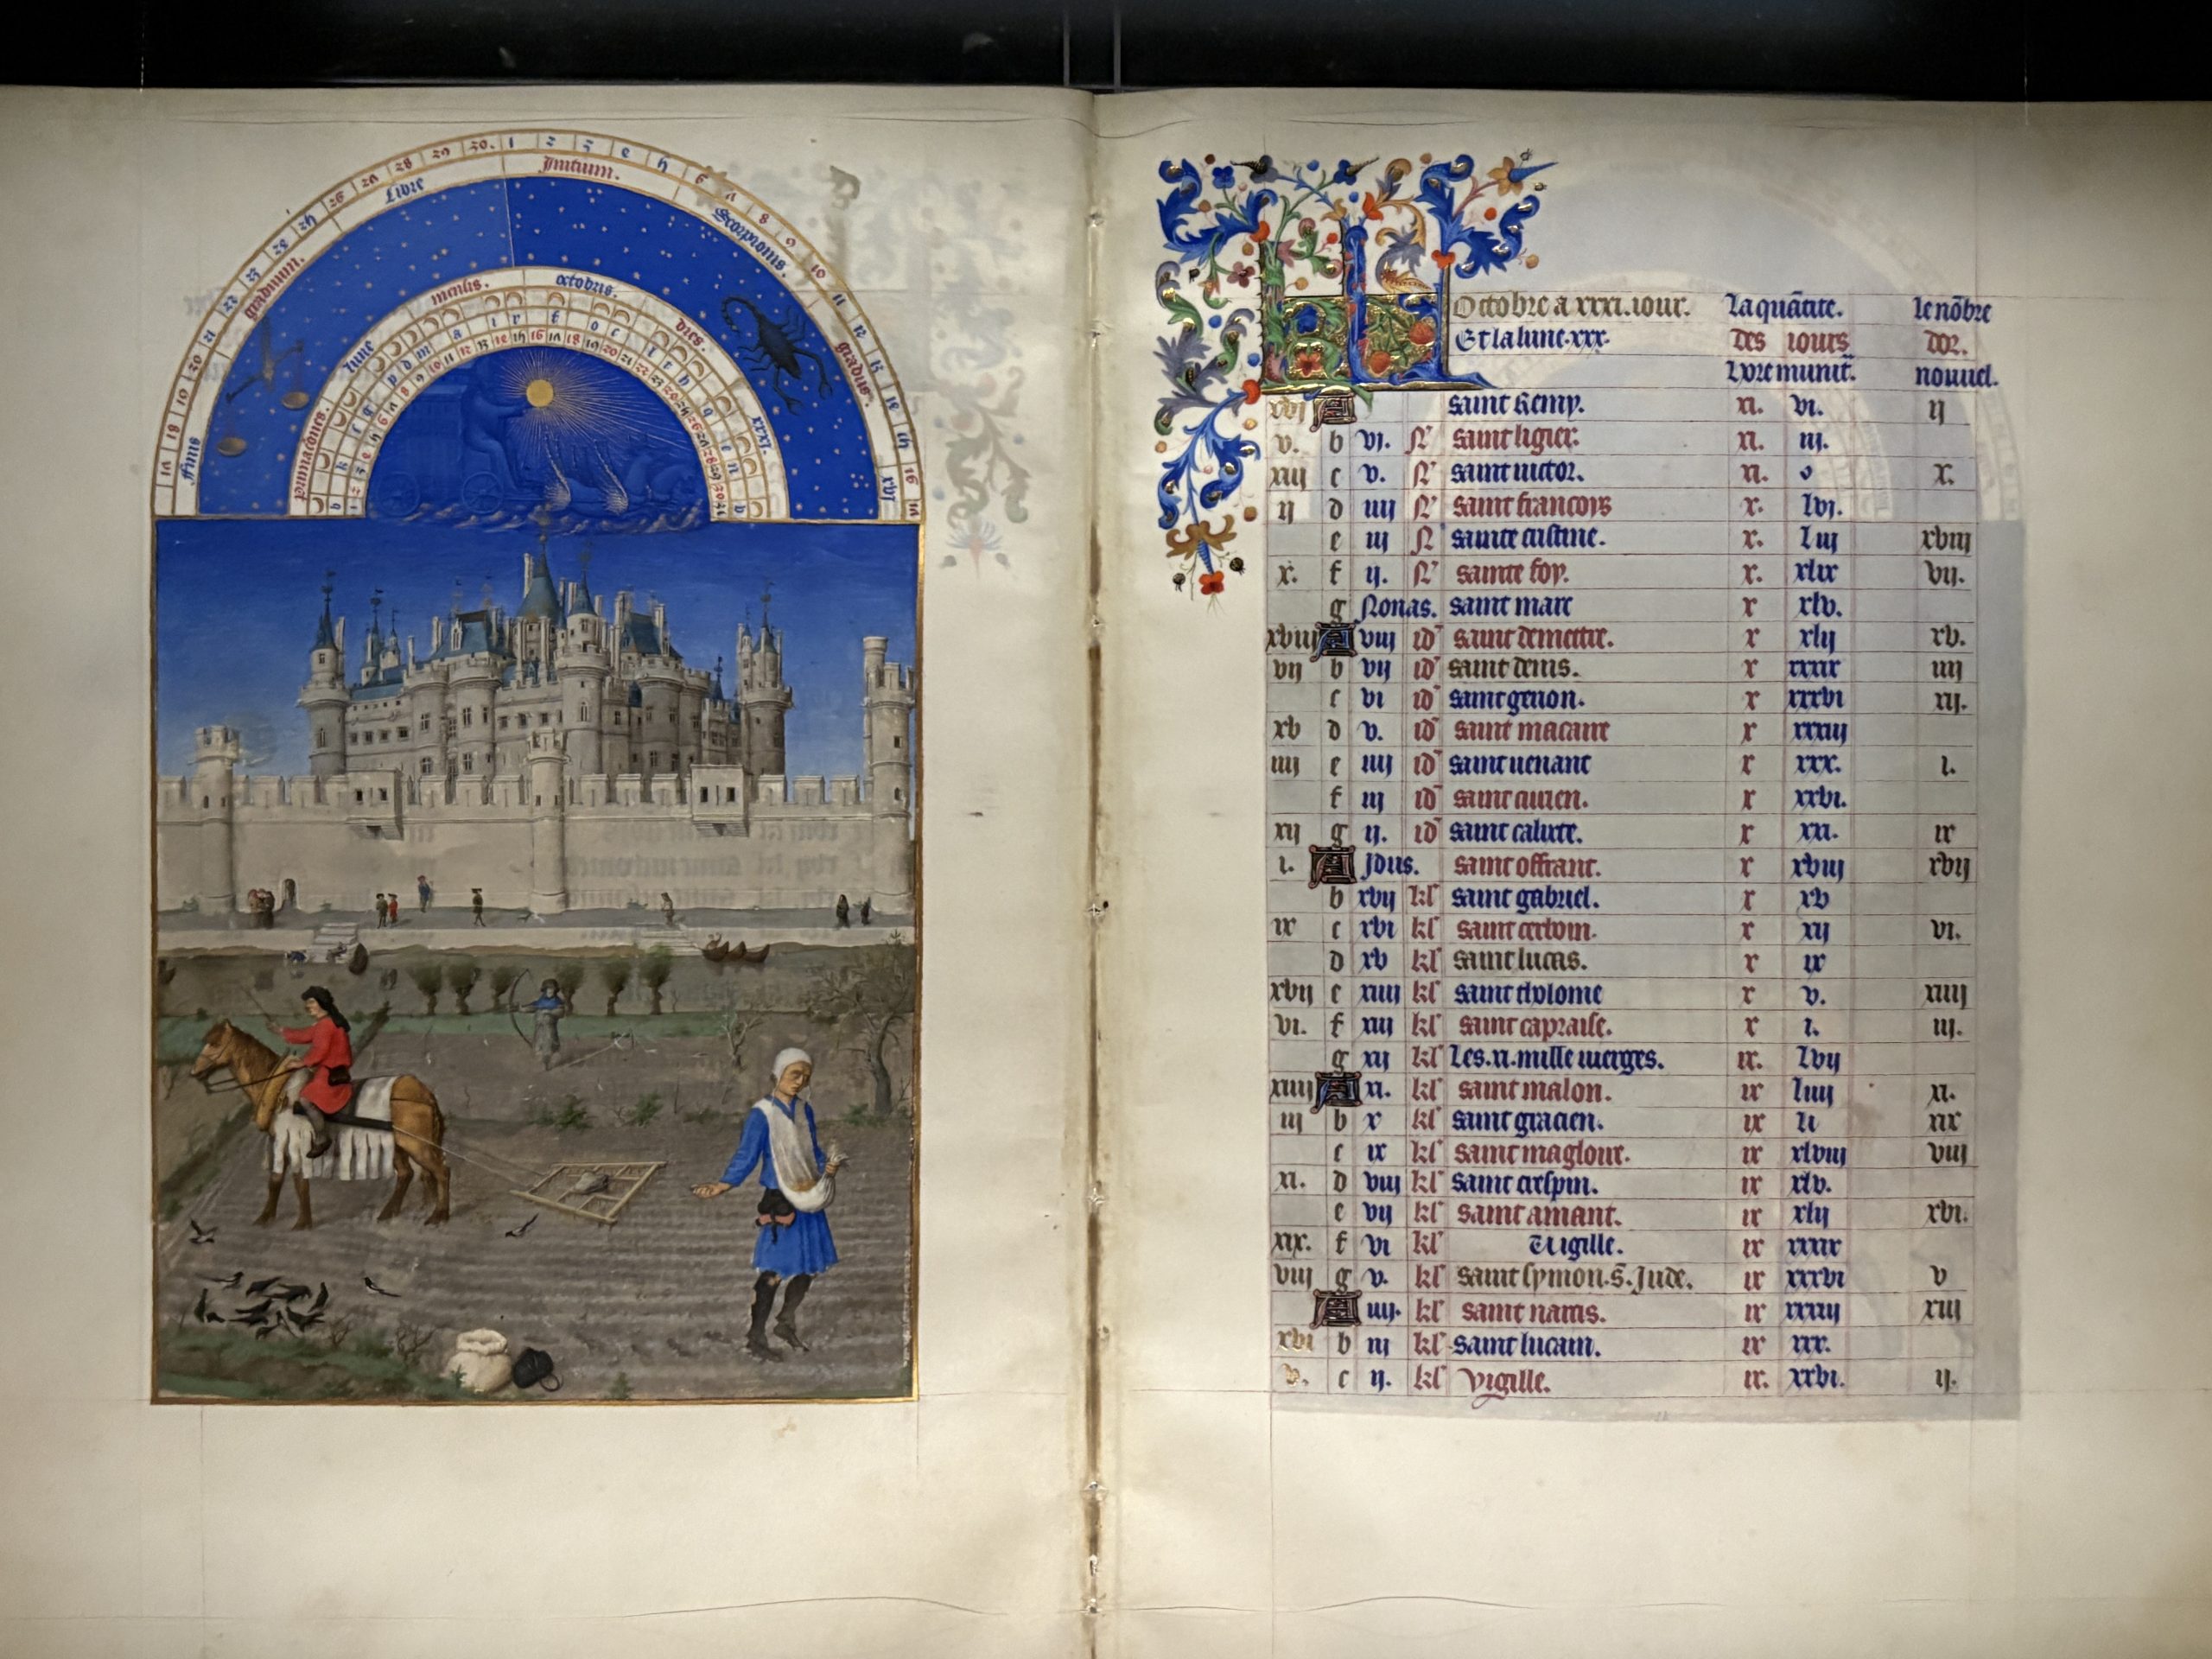 Initium.
Libre
Scorpionis.
graduum.
gradus.
ffinis
xvj
mensis.
octobris.
dies.
xxxj.
lune
Octobre a xxxi. iour.
Et la lune. xxx.
La quãtite.
des iours
le nõbre
dor.
nouuel.
xvj A saint Remy. xi. vi. ij
v. b vj. N saint ligier. xi. iij.
xiij c v. N saint uictor. xi. o x.
ij d iiij N saint francoys x. lvj.
e iij N sainte cristine. x. liij xviij
x. f ij. N sainte foy. x. xlix vij.
g Nonas. saint marc x xlv.
xviij A viij id saint demettre. x xlij xv.
vij b vij id saint denis. x xxxix iiij
c vi id saint genon. x xxxvi xij.
xv d v. id saint macaire x xxxiij
iiij e iiij id saint uenant x xxx. i.
f iij id x xxvi.
xij g ij. id saint calixte. x xxi. ix
i. A Idus. saint offrant. x xviij xvij
b xvij kl saint gabriel. x xv
ix c xvi kl saint cerboin. x xij vi.
d xv kl saint lucas. x ix
xvij e xiiij kl x v. xiiij
vi. f xiij kl saint capraise. x i. iij.
g xij kl Les. xi. mille uierges. ix. lvij
xiiij A xi. kl saint malon. ix liiij xi.
iij b x kl saint gracien. ix li xix
c ix kl saint magloire. ix xlviij viij
xi. d viij kl saint crespin. ix xlv.
e vij kl saint amant. ix xlij xvi.
xix. f vi kl Uigille. ix xxxix
viij g v. kl saint symon. s. Jude. ix xxxvi v
A iiij. kl saint narcis. ix xxxiij xiij
xvi b iij kl saint lucain. ix xxx.
v. c ij. kl Vigille. ix. xxvi. ij.